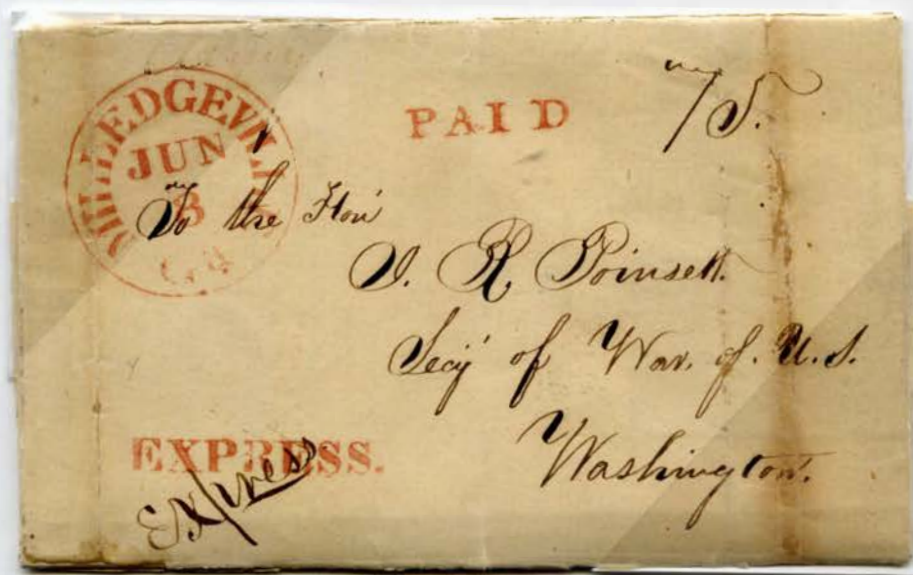 MILLEDGEVILLE
JUN
8
GA
PAID
75.
To the Hon'
J. R Poinsett.
Secy' of War. of. U. S.
Washington.
EXPRESS.
Express